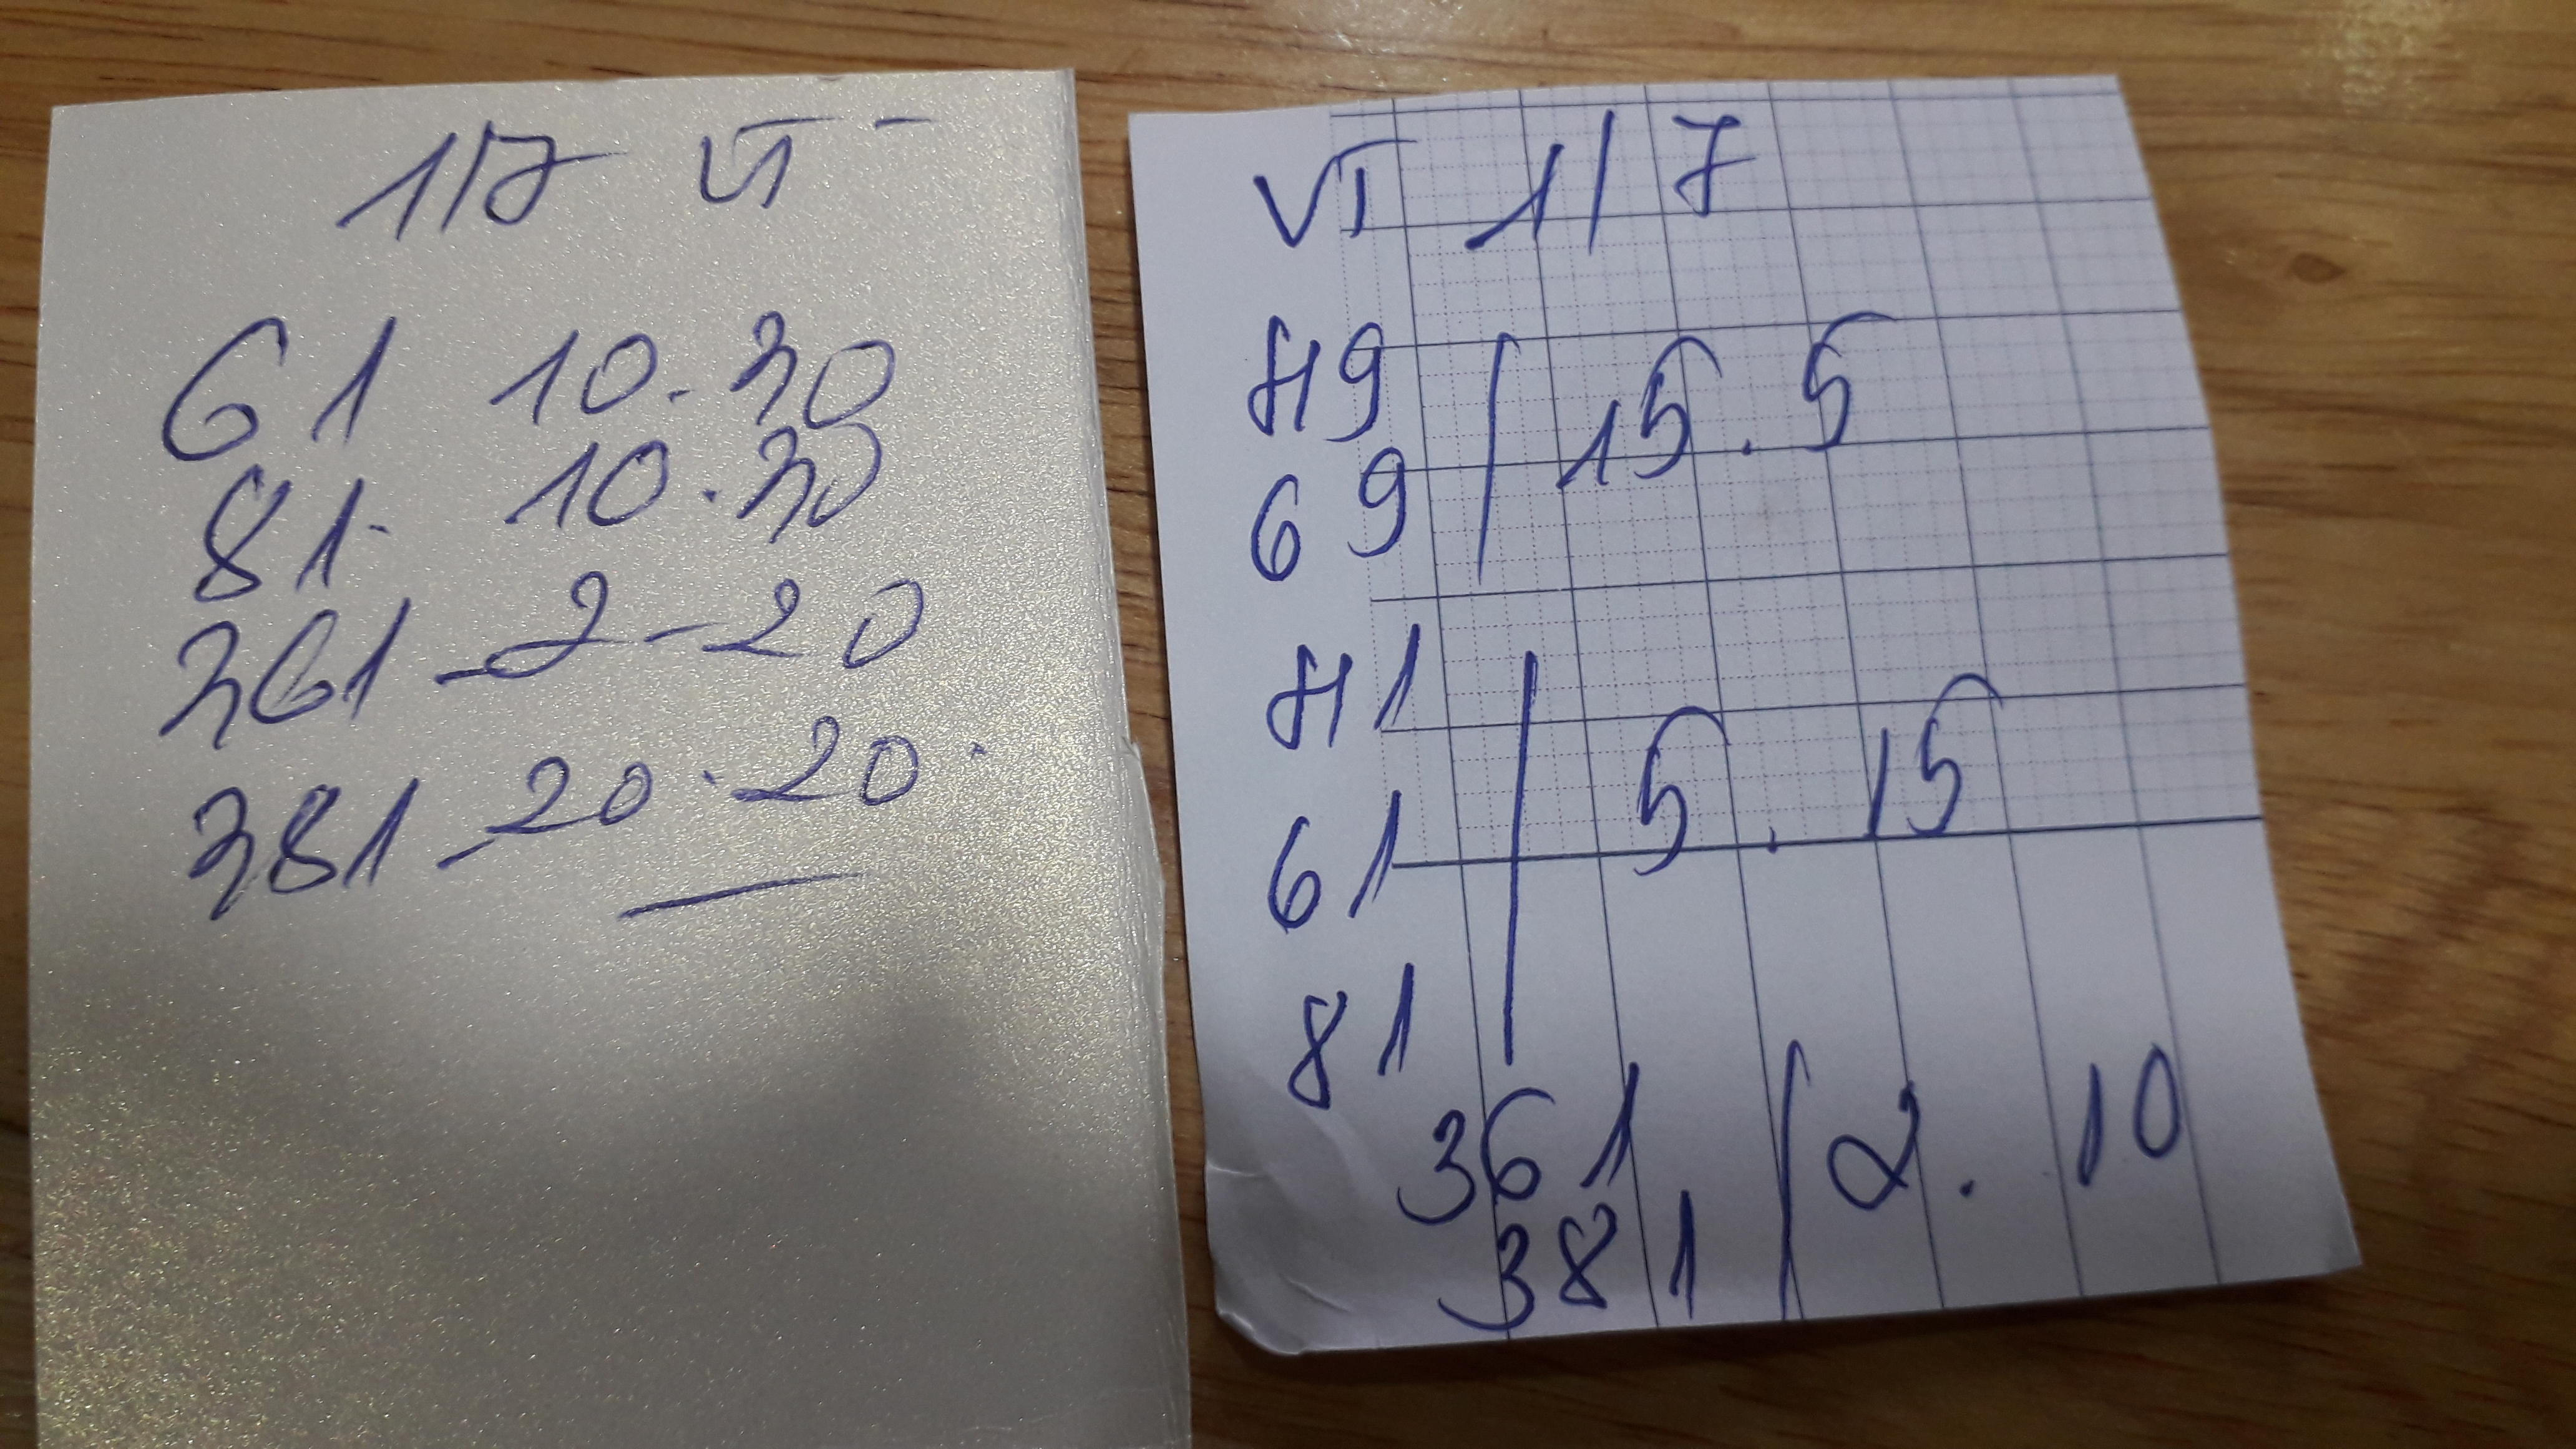 1/7 VT -
61 10.30
81. 10.30
361 - 2 - 20
381 - 20.20.
VT 1/7
49
69 | 15.5
41
61 | 5.15
81
361
381 | 2.10